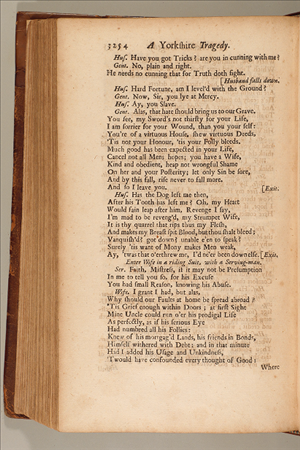 3254 A Yorkshire Tragedy.
Hus. Have you got Tricks? are you in cunning with me?
Gent. No, plain and right.
He needs no cunning that for Truth doth fight.
[Husband falls down.
Hus. Hard Fortune, am I level'd with the Ground?
Gent. Now, Sir, you lye at Mercy.
Hus. Ay, you Slave.
Gent. Alas, that hate should bring us to our Grave.
You see, my Sword's not thirsty for your Life,
I am sorrier for your Wound, than you your self:
You're of a virtuous House, shew virtuous Deeds,
'Tis not your Honour, 'tis your Folly bleeds.
Much good has been expected in your Life,
Cancel not all Mens hopes; you have a Wife,
Kind and obedient, heap not wrongful Shame
On her and your Posterity; let only Sin be sore,
And by this fall, rise never to fall more.
And so I leave you. [Exit.
Hus. Has the Dog left me then,
After his Tooth has left me? Oh, my Heart
Would fain leap after him, Revenge I say,
I'm mad to be reveng'd, my Strumpet Wife,
It is thy quarrel that rips thus my Flesh,
And makes my Breast spit Blood, but thou shalt bleed:
Vanquish'd? got down? unable e'en to speak?
Surely 'tis want of Mony makes Men weak,
Ay, 'twas that o'erthrew me, I'd ne'er been down else. [Exit.
Enter Wife in a riding Suit, with a Serving-man.
Ser. Faith, Mistress, if it may not be Presumption
In me to tell you so, for his Excuse
You had small Reason, knowing his Abuse.
Wife. I grant I had, but alas,
Why should our Faults at home be spread abroad?
'Tis Grief enough within Doors; at first Sight
Mine Uncle could run o'er his prodigal Life
As perfectly, as if his serious Eye
Had numbred all his Follies:
Knew of his mortgag'd Lands, his friends in Bonds,
Himself withered with Debt; and in that minute
Had I added his Usage and Unkindness,
T'would have confounded every thought of Good:
Where